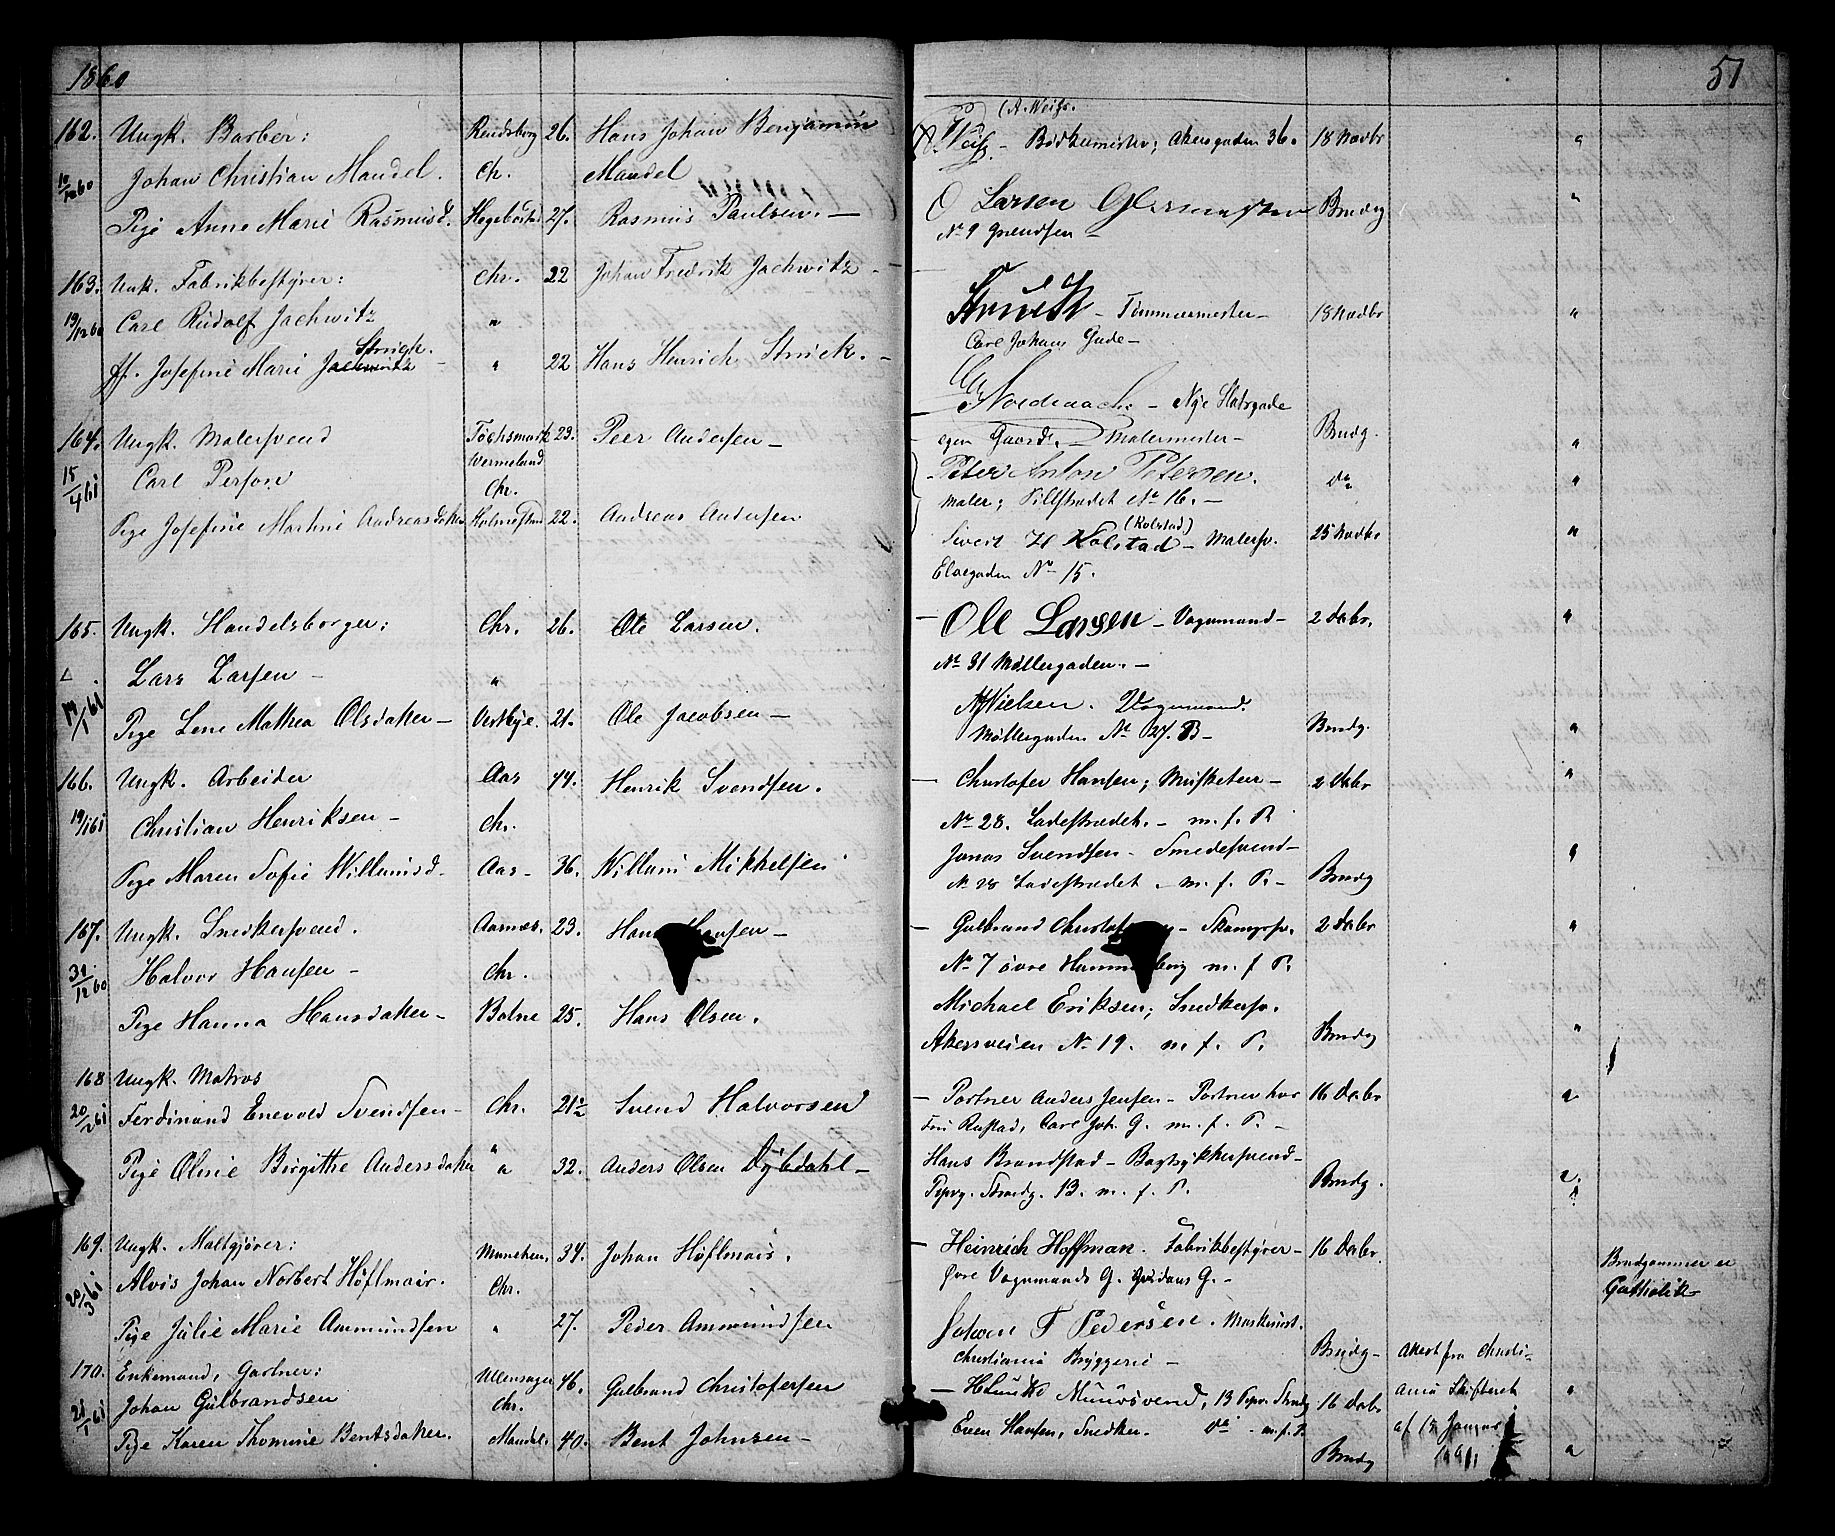 1860
51
162. Ungk. Barber: Rendsborg 26. Hans Johan Benjamin
10/12 60 Johan Christian Mandel. Ch. Mandel
Pige Anne Marie Rasmusd. 27. Rasmus Paulsen. —
(A. Weiss.
Bødkermester; Akersgaden 36. 18 Novbr "
O Larsen Brudg "
No 9 Grendsen —
163. Unk. Fabrikbestyrer: Chr. 22 Johan Fredrik Jachwitz —
19/12 60 Carl Rudolf Jachwitz "
Struck.
ff. Josefine Marie Jachwitz — " 22 Hans Henrich Struck. —
Struck — Tømmermester — 18 Novbr "
Carl Johans Gade —
164. Ungk. Malersvend 23. Peer Andersen —
Wermeland
15/4 61 Carl Person Chr.
Pige Josefine Martine Andreasdater Holmestrand 22. Andreas Andersen
— Nye Slotsgade
egen Gaard. Malermester — Brudg. "
Peter Anton Petersen. do "
Maler; Pillestrædet No 16. —
(Kolstad)
Sivert H Kolstad — Malersv. 25 Novbr "
Elvegaden No 15.
165. Ungk. Handelsborger: Chr. 26. Ole Larsen.
Lars Larsen — "
19/1 61
Pige Lene Mathea Olsdater — Vestbye. 21. Ole Jacobsen —
— Ole Larsen — Vognmand — 2 Decbr. "
No 31 Møllergaden. —
Nielsen. Vognmand.
Møllergaden No 27. B — Brudg. "
166. Ungk. Arbeider Aas 44. Henrik Svendsen.
19/1 61 Christian Henriksen — Chr.
Pige Maren Sofie Willumsd. Aas — 36. Willum Mikkelsen
— Christofer Hansen; Musketeer — 2 Decbr "
No 28. Ladestrædet. — m. f. P.
Jonas Svendsen — Smedesvend — "
No 28 Ladestrædet — m. f. P. — Brudg
167. Ungk. Snedkersvend. Aasnæs. 23. Hans Hansen —
31/12 60 Halvor Hansen — Chr.
Pige Hanna Hansdater — Botne 25. Hans Olsen.
— Gulbrand — 2 Decbr "
No 7 øvre Hammersborg m. f. P.
Michael Eriksen; Snedkersv.
Akersveien No 19. m. f. P. Brudg "
168 Ungk. Matros
20/2 61 Ferdinand Enevold Svendsen — Chr. 21½ Svend Halvorsen
Pige Olivie Birgithe Andersdater " 32. Anders Olsen Dybdahl —
— Portner Anders Jensen — Portner hos 16 Decbr
Rustad, Carl Joh. G. m. f. P. —
Hans Brandstad — Bogtrykkersvend —
Pipvg. Strandg. 13. m. f. P. Brudg.
169. Ungk. Maltgjører: München. 34. Johan Höflmair.
20/3 61 Alois Johan Norbert Höflmair. Chr.
Pige Julie Marie Ammundsen " 27. Peder Ammundsen
— Heinrich Hoffman. Fabrikbestyrer — 16 Decbr
Øvre Vognmands G.
Brudgommen er
Catholik
Johan F Pedersen. Maskinist.
Christiania Bryggeri — Brudg — Attest fra Christi-
170. Enkemand, Gartner: Ullensager 46. Gulbrand Christofersen
21/1 61 Johan Gulbrandsen Chr.
Pige Karen Thomine Bentsdater. Mandal. 40. Bent Johnsen —
Muursvend, 13 Pipv. Strandg 16 Decbr ania Skifteret "
Even Hansen, Snedker. do — m. f. P. af 12 Januar
Brudg 1861 "